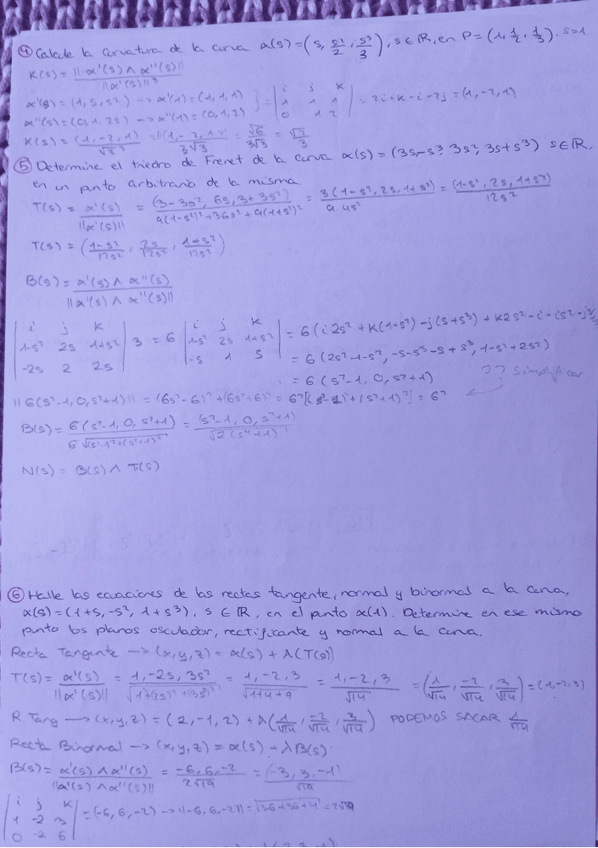 ④ Calcule la curvatura de la curva α(s) = (s, s²/2, s³/3), s∈ℝ, en P = (1, 1/2, 1/3). s=1
K(s) = ||α'(s) ∧ α''(s)|| / ||α'(s)||³
α'(s) = (1, s, s²) → α'(1) = (1, 1, 1) | i j k / 1 1 1 / 0 1 2 | = 2i+k-i-2j = (1, -2, 1)
α''(s) = (0, 1, 2s) → α''(1) = (0, 1, 2)
K(s) = (1, -2, 1) / √3³ = ||1, -2, 1|| / 3√3 = √6 / 3√3 = √2 / 3
⑤ Determine el triedro de Frenet de la curva α(s) = (3s-s³, 3s², 3s+s³) s∈ℝ.
en un punto arbitrario de la misma
T(s) = α'(s) / ||α'(s)|| = (3-3s², 6s, 3+3s²) / 9(1-s²)²+36s²+9(1+s²)² = 3(1-s², 2s, 1+s²) / 9·4s² = (1-s², 2s, 1+s²) / 12s²
T(s) = (1-s²/12s², 2s/12s², 1+s²/12s²)
B(s) = α'(s) ∧ α''(s) / ||α'(s) ∧ α''(s)||
| i j k / 1-s² 2s 1+s² / -2s 2 2s | 3 = 6 | i j k / 1-s² 2s 1+s² / -s 1 s | = 6(i2s²+k(1-s²)-j(s+s³)+k2s²-i-is²-js
= 6(2s²-1-s², -s-s³-s+s³, 1-s²+2s²)
= 6(s²-1, 0, s²+1)
?? Simplificar
||6(s²-1, 0, s²+1)|| = (6s²-6)²+(6s²+6)² = 6²[(s²-1)²+(s²+1)²] = 6²
B(s) = 6(s²-1, 0, s²+1) / 6√(s²-1)²+(s²+1)² = (s²-1, 0, s²+1) / √2(s⁴+1)
N(s) = B(s) ∧ T(s)
⑥ Halle las ecuaciones de las rectas tangente, normal y binormal a la curva,
α(s) = (1+s, -s², 1+s³), s∈ℝ, en el punto α(1). Determine en ese mismo
punto los planos osculador, rectificante y normal a la curva.
Recta Tangente → (x, y, z) = α(s) + λ(T(s))
T(s) = α'(s) / ||α'(s)|| = 1, -2s, 3s² / √1+(2s)²+(3s²)² = 1, -2, 3 / √1+4+9 = 1, -2, 3 / √14 = (1/√14, -2/√14, 3/√14) = (1, -2, 3)
R. Tang → (x, y, z) = (2, -1, 2) + λ(1/√14, -2/√14, 3/√14) PODEMOS SACAR 1/√14
Recta Binormal → (x, y, z) = α(s) + λB(s).
B(s) = α'(s) ∧ α''(s) / ||α'(s) ∧ α''(s)|| = -6, 6, -2 / 2√19 = (-3, 3, -1) / √19
| i j k / 1 -2 3 / 0 -2 6 | = (-6, 6, -2) → ||-6, 6, -2|| = √36+36+4 = 2√19